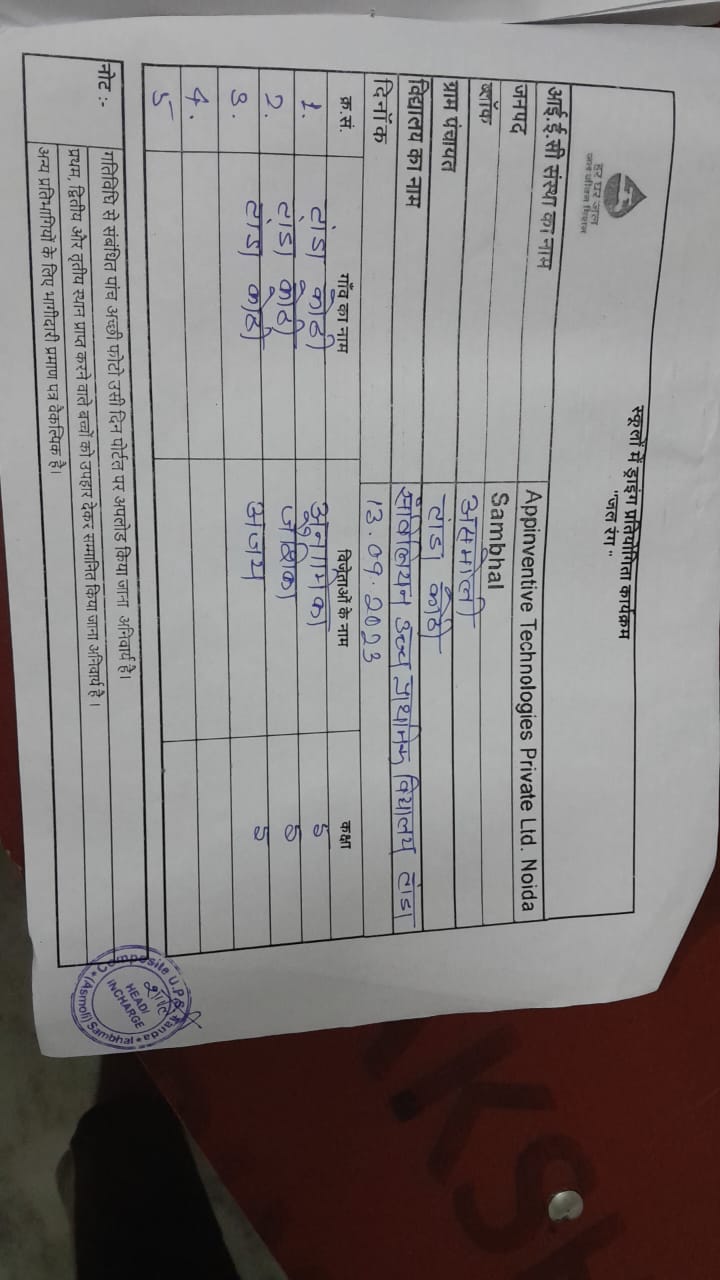 हर घर जल
जल जीवन मिशन
स्कूलों में ड्राइंग प्रतियोगिता कार्यक्रम
"जल रंग"
आई.ई.सी संस्था का नाम Appinventive Technologies Private Ltd. Noida
जनपद Sambhal
ब्लॉक असमोली
ग्राम पंचायत टांडा कोठी
विद्यालय का नाम संविलियन उच्च प्राथमिक विद्यालय टांडा
दिनाँक 13.09.2023
क्र.सं. गाँव का नाम विजेताओं के नाम कक्षा
1. टांडा कोठी अनामिका 5
2. टांडा कोठी 5
3. टांडा कोठी अजय 5
4.
5
नोट :- गतिविधि से संबंधित पांच अच्छी फोटो उसी दिन पोर्टल पर अपलोड किया जाना अनिवार्य है।
प्रथम, द्वितीय और तृतीय स्थान प्राप्त करने वाले बच्चों को उपहार देकर सम्मानित किया जाना अनिवार्य है।
अन्य प्रतिभागियों के लिए भागीदारी प्रमाण पत्र वैकल्पिक है।
Composite U.P.S. Tanda
HEAD/
INCHARGE
(Asmoli) Sambhal